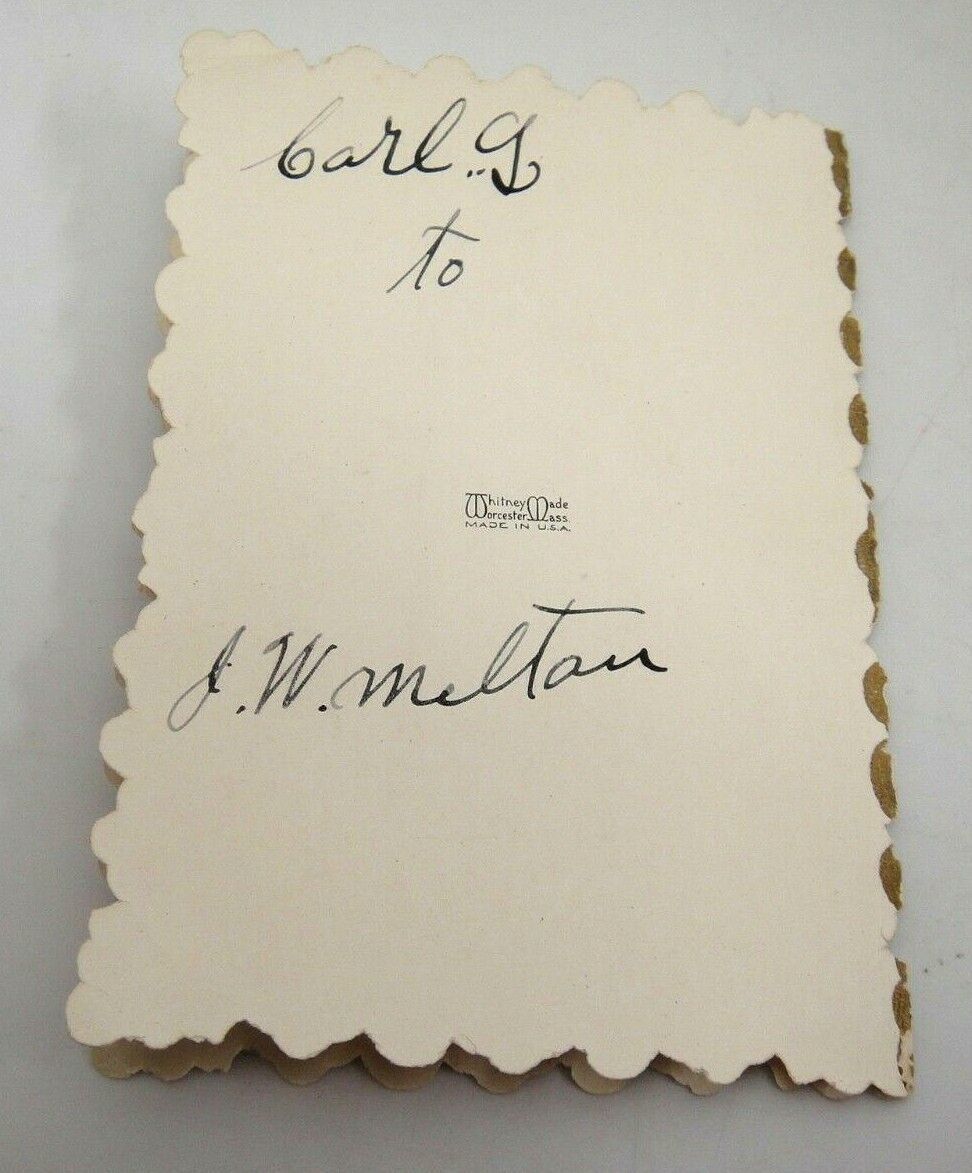 Carl..G
to
Whitney Made
Worcester Mass.
MADE IN U.S.A.
J.W. Melton